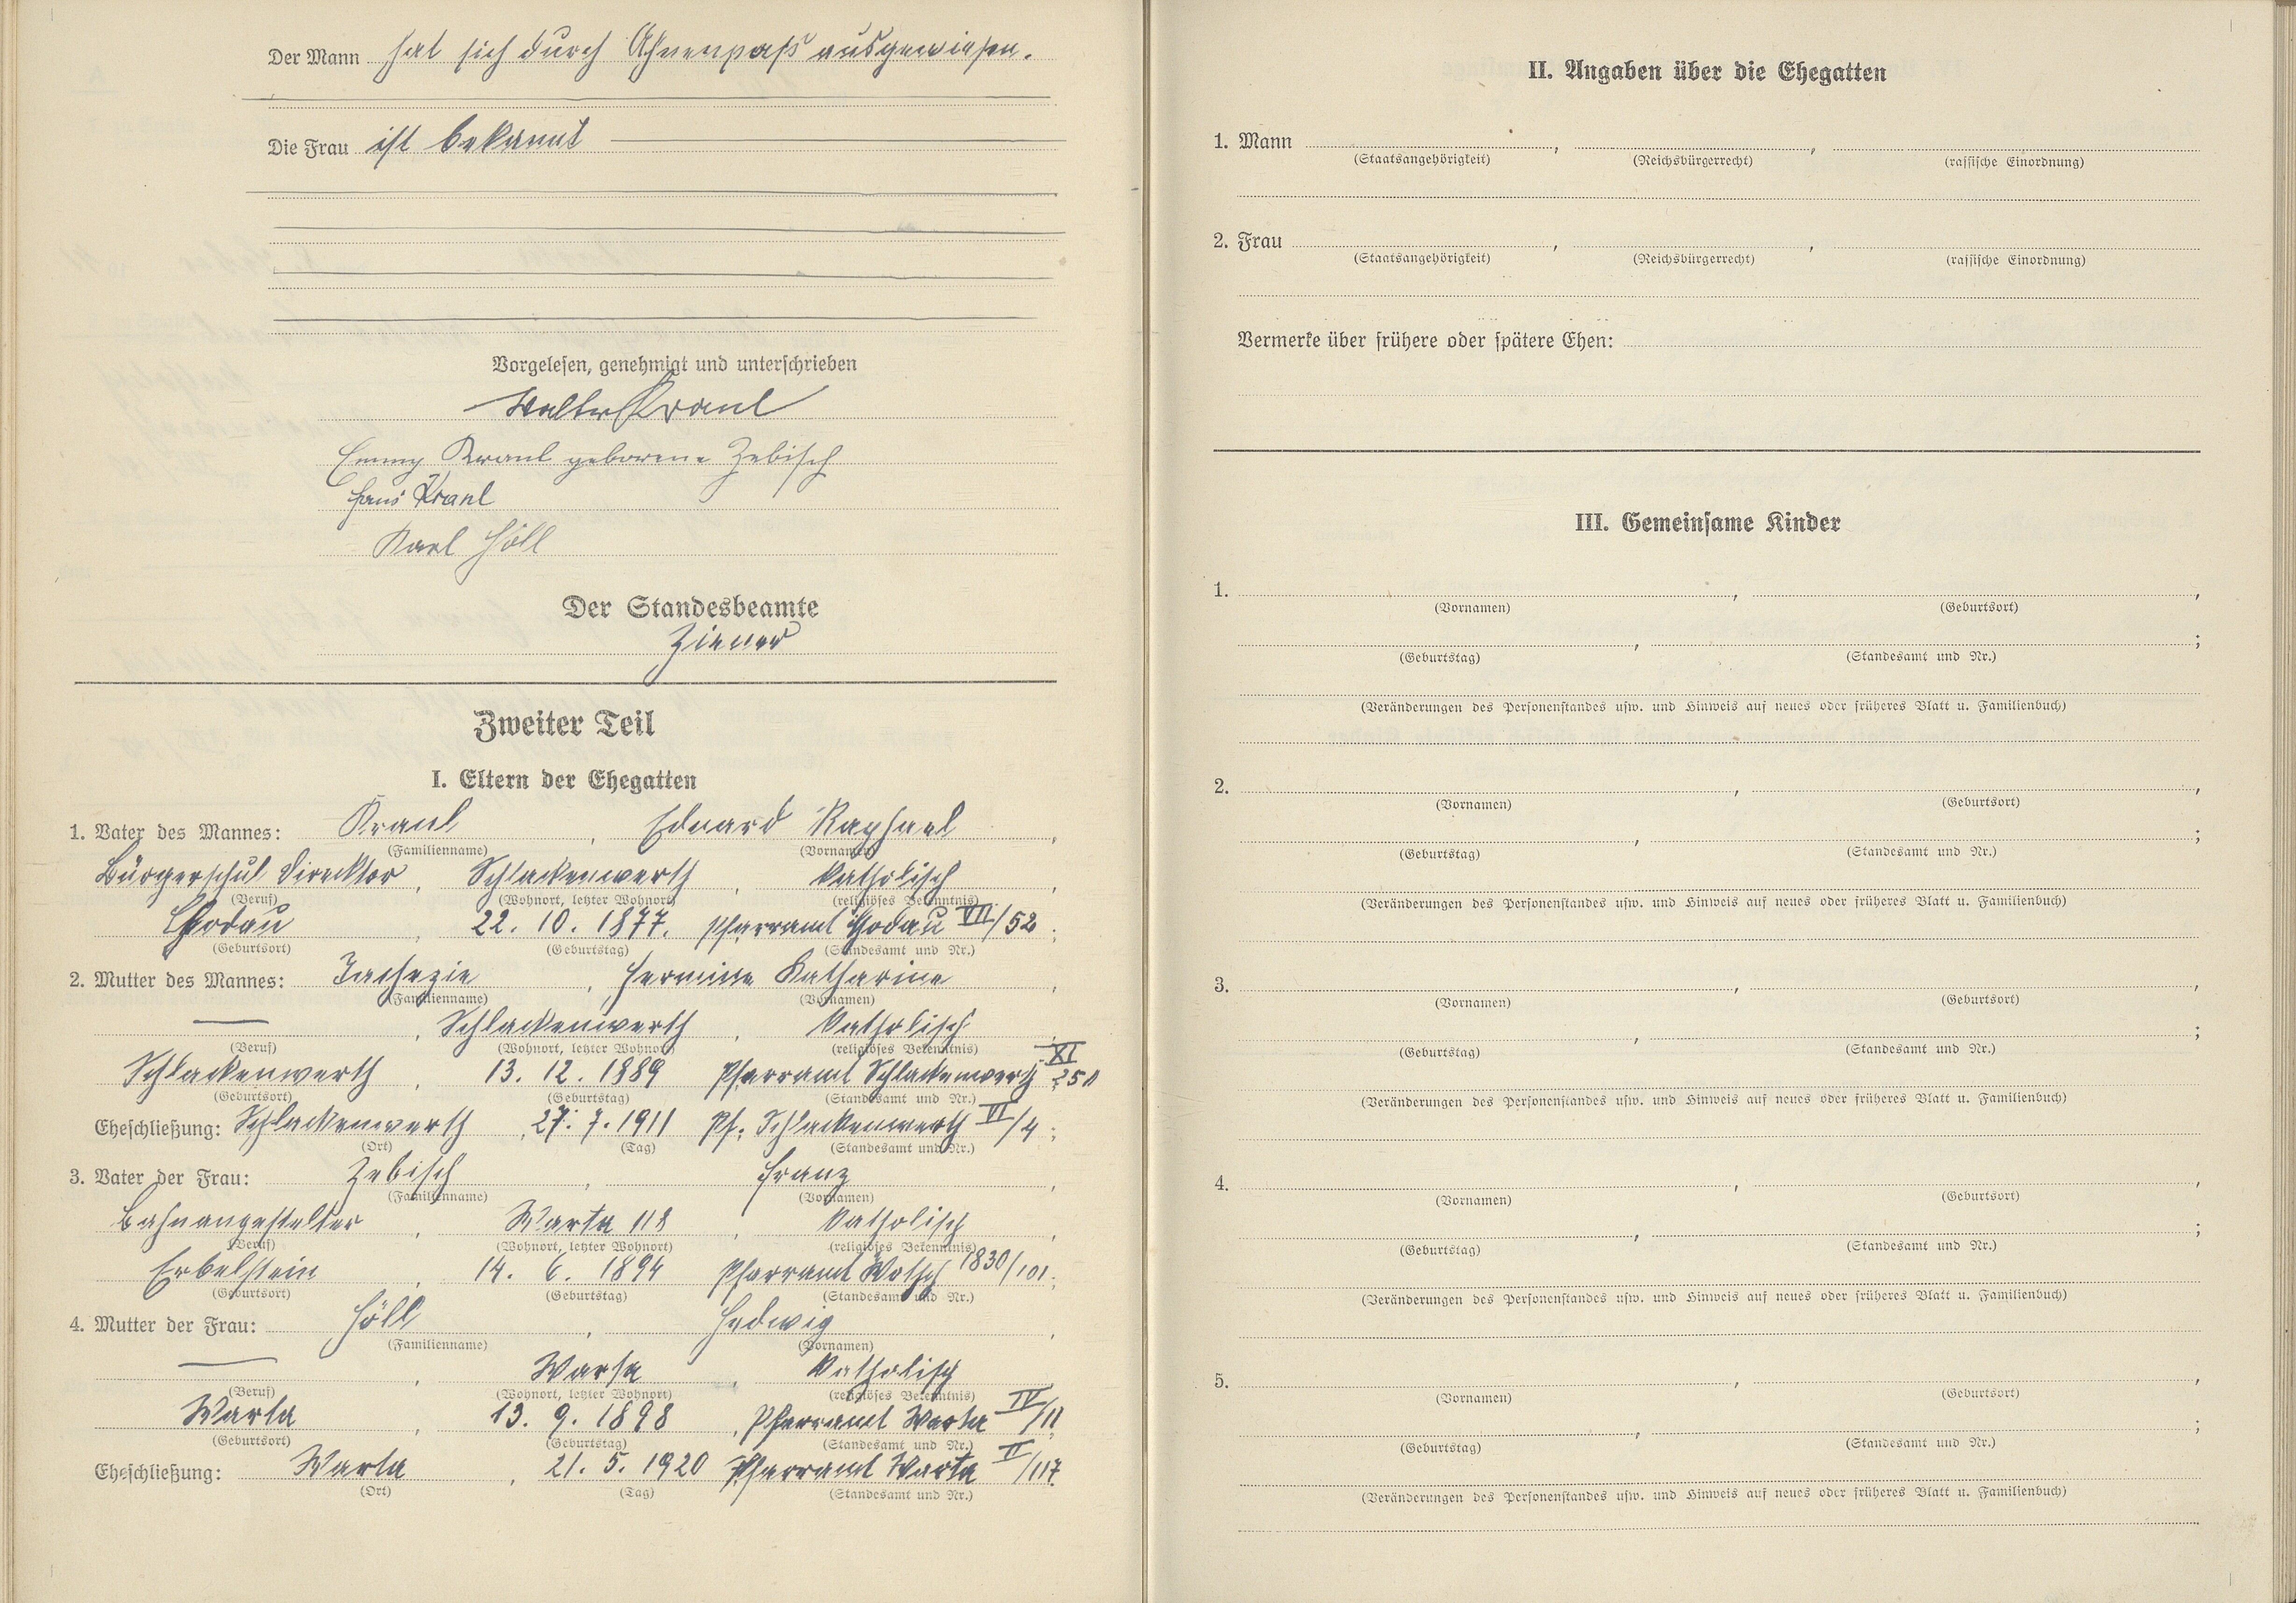 Der Mann hat sich durch Ahnenpaß ausgewiesen.
Die Frau ist bekannt
Vorgelesen, genehmigt und unterschrieben
Walter Kraul
Emmy Kraul geborene Zebisch
Hans Kraul
Karl Höll
Der Standesbeamte
Ziener
Zweiter Teil
I. Eltern der Ehegatten
1. Vater des Mannes: Kraul, Eduard Raphael,
(Familienname) (Vornamen)
Bürgerschul Direcktor, Schlackenwerth, katholisch,
(Beruf) (Wohnort, letzter Wohnort) (religiöses Bekenntnis)
Chodau, 22. 10. 1877. Pfarramt Chodau VII/52;
(Geburtsort) (Geburtstag) (Standesamt und Nr.)
2. Mutter des Mannes: Hermine Katharine,
(Familienname) (Vornamen)
—, Schlackenwerth, katholisch,
(Beruf) (Wohnort, letzter Wohnort) (religiöses Bekenntnis)
Schlackenwerth, 13. 12. 1889 Pfarramt Schlackenwerth XI
(Geburtsort) (Geburtstag) (Standesamt und Nr.)
Eheschließung: Schlackenwerth, 27. 7. 1911 Pf. Schlackenwerth VI/4;
(Ort) (Tag) (Standesamt und Nr.)
3. Vater der Frau: Zebisch, Franz,
(Familienname) (Vornamen)
Bahnangestellter, Warta 118, katholisch,
(Beruf) (Wohnort, letzter Wohnort) (religiöses Bekenntnis)
Erbelstein, 14. 6. 1894 Pfarramt Wotsch 1830/101;
(Geburtsort) (Geburtstag) (Standesamt und Nr.)
4. Mutter der Frau: Höll, Hedwig,
(Familienname) (Vornamen)
—, Warta, katholisch
(Beruf) (Wohnort, letzter Wohnort) (religiöses Bekenntnis)
Warta, 13. 9. 1898, Pfarramt Warta IV/11
(Geburtsort) (Geburtstag) (Standesamt und Nr.)
Eheschließung: Warta, 21. 5. 1920 Pfarramt Warta II/117
(Ort) (Tag) (Standesamt und Nr.)
II. Angaben über die Ehegatten
1. Mann , ,
(Staatsangehörigkeit) (Reichsbürgerrecht) (rassische Einordnung)
2. Frau , ,
(Staatsangehörigkeit) (Reichsbürgerrecht) (rassische Einordnung)
Vermerke über frühere oder spätere Ehen:
III. Gemeinsame Kinder
1. , ,
(Vornamen) (Geburtsort)
, ;
(Geburtstag) (Standesamt und Nr.)
(Veränderungen des Personenstandes usw. und Hinweis auf neues oder früheres Blatt u. Familienbuch)
2. , ,
(Vornamen) (Geburtsort)
, ;
(Geburtstag) (Standesamt und Nr.)
(Veränderungen des Personenstandes usw. und Hinweis auf neues oder früheres Blatt u. Familienbuch)
3. , ,
(Vornamen) (Geburtsort)
, ;
(Geburtstag) (Standesamt und Nr.)
(Veränderungen des Personenstandes usw. und Hinweis auf neues oder früheres Blatt u. Familienbuch)
4. , ,
(Vornamen) (Geburtsort)
, ;
(Geburtstag) (Standesamt und Nr.)
(Veränderungen des Personenstandes usw. und Hinweis auf neues oder früheres Blatt u. Familienbuch)
5. , ,
(Vornamen) (Geburtsort)
, ;
(Geburtstag) (Standesamt und Nr.)
(Veränderungen des Personenstandes usw. und Hinweis auf neues oder früheres Blatt u. Familienbuch)